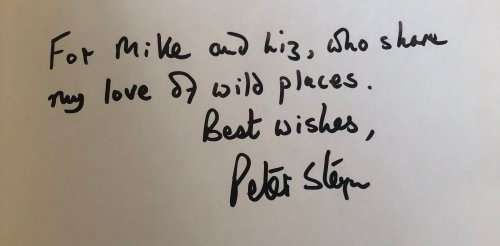 For Mike and Liz, who share
my love of wild places.
Best wishes,
Peter Steyn